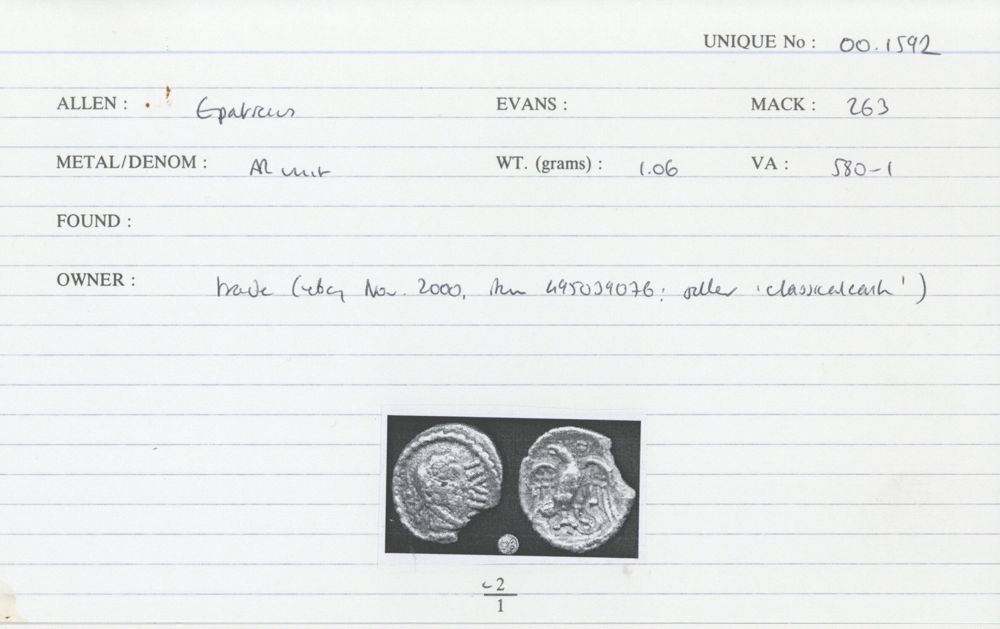 UNIQUE No : 00.1592
ALLEN : Epaticcus EVANS : MACK : 263
METAL/DENOM : AR unit WT. (grams) : 1.06 VA : 580-1
FOUND :
OWNER : trade (ebay Nov. 2000, item 495039076: seller 'classicalcash')
2
1